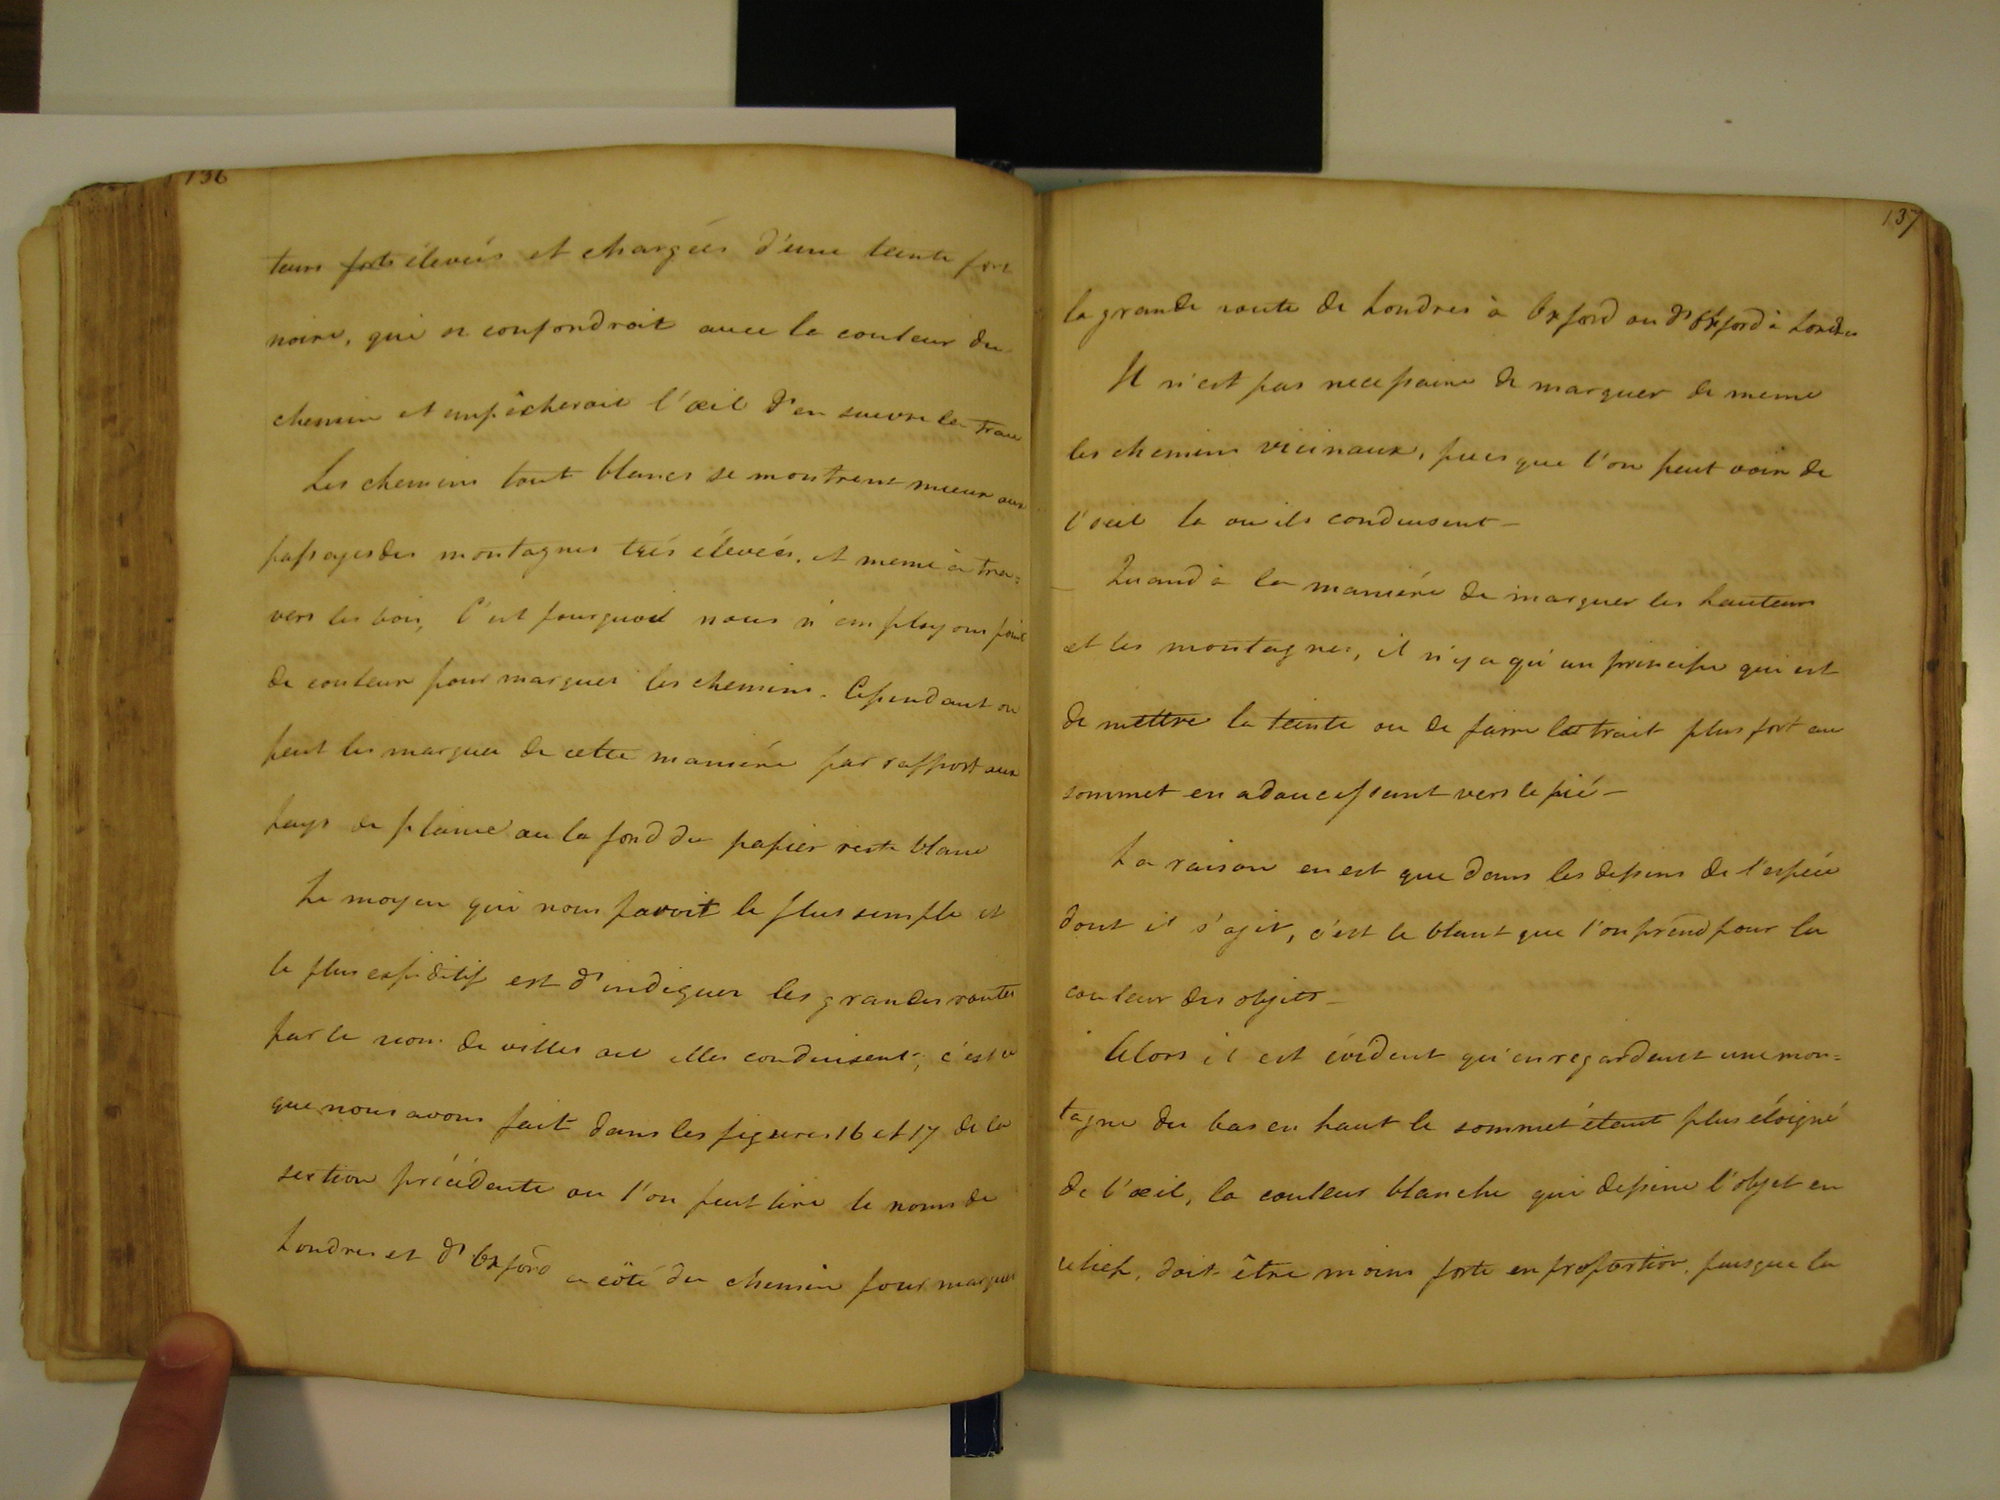 136
teurs forts élevéés et chargées d'une teinte fort
noire, qui se confondroit avec la couleur du
chemin et empêcherait l'œil d'en suivre le trait
Les chemins tout blancs se montrent mieux aux
passages des montagnes trés élevées, et meme à tra=
vers les bois, C'est pourquoi nous n'employons point
de couleur pour marquer les chemins. Cependant on
peut les marquer de cette maniére par rapport aux
pays de plaine ou le fond du papier reste blanc
Le moyen qui nous paroit le plus simple et
le plus expéditif est d'indiquer les grandes routes
par le nom de villes ou elles conduisent; c'est ce
que nous avons fait dans les figures 16 et 17 de la
section précédente ou l'on peut lire le noms de
Londres et d'Oxford a coté du chemin pour marquer
137
la grande route de Londres à Oxford ou d'Oxford à Londres
Il n'est pas necessaire de marquer de meme
les chemins vicinaux, puisque l'on peut voir de
l'oeil la ou ils conduisent—
Quand à la maniére de marquer les hauteurs
et les montagnes, il n'y a qu'un principe qui est
de mettre la teinte ou de faire le trait plus fort au
sommet en adoucissant vers le pié—
La raison en est que dans les dessins de l'espéce
dont il s'agit, c'est le blanc que l'on prend pour la
couleur des objets—
Alors il est évident qu'en regardant une mon=
tagne du bas en haut le sommet étant plus éloigné
de l'œil, la couleur blanche qui dessine l'objet en
relief, doit être moins forte en proportion, puisque la